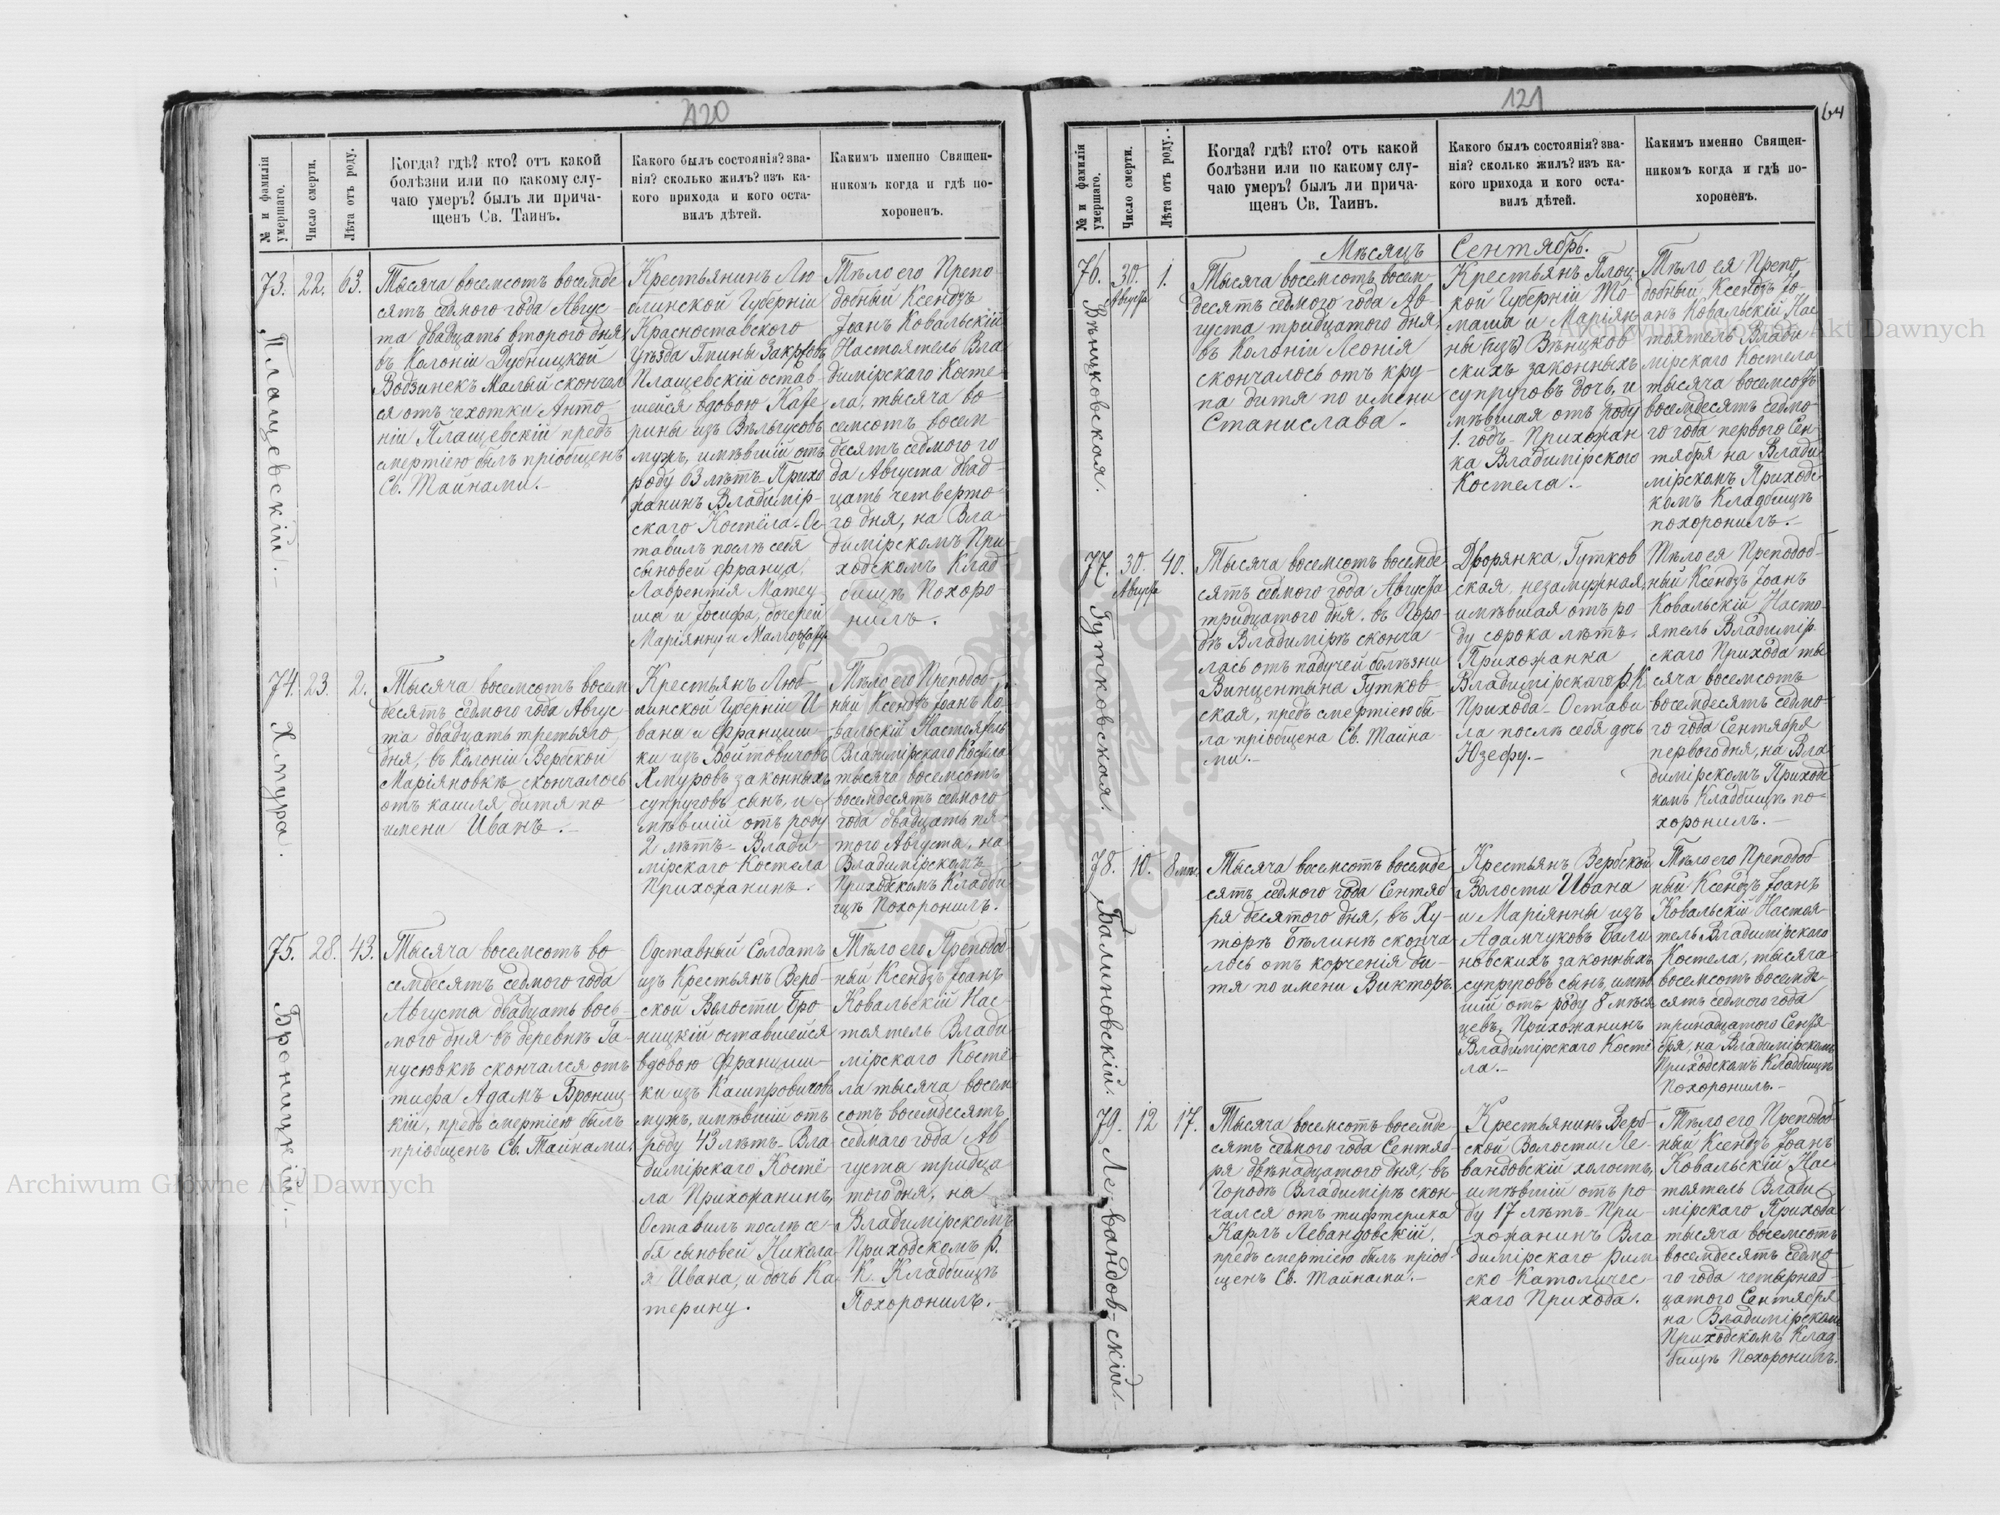 120
№ и фамилія умершаго.
Число смерти.
Лѣта отъ роду.
Когда? гдѣ? кто? отъ какой
болѣзни или по какому слу-
чаю умеръ? былъ ли прича-
щенъ Св. Таинъ.
Какого былъ состоянія? зва-
нія? сколько жилъ? изъ ка-
кого прихода и кого оста-
вилъ дѣтей.
Какимъ именно Священ-
никомъ когда и гдѣ по-
хороненъ.
73.
Плащевскій.-
22.
63.
Тысяча восемсотъ восемде
сятъ седмого года Авгус
та двадцать второго дня,
въ Колоніи Дубницкой
Водзинекъ Малый скончал
ся отъ чехотки Анто
ній Плащевскій предъ
смертіею былъ пріобщенъ
Св. Тайнами.-
Крестьянинъ Лю
блинской Губерніи
Красноставского
Уѣзда Гмины
Плащевскій остав
шейся вдовою Кате
рины изъ
мужъ, имѣвшій отъ
роду 63 лѣтъ. Прихо
жанинъ Владимір-
скаго Костёла. Ос
тавилъ послѣ себя
сыновей Франца,
Лаврентія Матеу
ша и Іосифа, дочерей
Маріянну и
Тѣло его Препо-
добный Ксендзъ
Іоанъ Ковальскій
Настоятель Вла
димірскаго Косте
ла, тысяча во-
семсотъ восем
десятъ седмого го
да Августа двад-
цать четверто-
го дня, на Вла-
димірскомъ При
ходскомъ Клад
бищѣ Похоро-
нилъ.
74.
Хмура.
23.
2.
Тысяча восемсотъ восем
десятъ седмого года Авгус
та двадцать третьяго
дня, въ Колоніи Вербской
Маріяновкѣ скончалось
отъ кашля дитя по
имени Иванъ.-
Крестьянъ Люб-
линской Губерніи И
вана и Франциш-
ки изъ Войтовичовъ
Хмуровъ законныхъ
супруговъ сынъ, и
мѣвшій отъ роду
2 лѣтъ- Влади-
мірскаго Костела
Прихожанинъ.
Тѣло его Преподоб
ный Ксендзъ Іоанъ Ко
вальскій Настоятель
Владимірскаго Костела
тысяча восемсотъ
восемдесятъ седмого
года двадцать пя-
того Августа, на
Владимірскомъ
Приходскомъ Кладби
щѣ Похоронилъ.
75.
Броницкій.-
28.
43.
Тысяча восемсотъ во
семдесятъ седмого года
Августа двадцать вось
мого дня въ деревнѣ Га-
нусювкѣ скончался отъ
тифа Адамъ Брониц-
кій, предъ смертіею былъ
пріобщенъ Св. Тайнами.
Одставный Солдатъ
изъ Крестьянъ Верб-
ской Волости Бро
ницкій оставшейся
вдовою Франциш-
ки изъ Каспровичовъ
мужъ, имѣвшій отъ
роду 43 лѣтъ- Вла
димірскаго Костё
ла Прихожанинъ,
Оставилъ послѣ се-
бя сыновей Никола-
я Ивана, и дочь Ка-
терину.
Тѣло его Преподоб
ный Ксендзъ Іоанъ
Ковальскій Нас-
тоятель Влади-
мірскаго Костё
ла тысяча восем
сотъ восемдесятъ
седмаго года Ав
густа тридца
того дня, на
Владимірскомъ
Приходскомъ Р.
К. Кладбищѣ
Похоронилъ.-
121
64
№ и фамилія умершаго.
Число смерти.
Лѣта отъ роду.
Когда? гдѣ? кто? отъ какой
болѣзни или по какому слу-
чаю умеръ? былъ ли прича-
щенъ Св. Таинъ.
Какого былъ состоянія? зва-
нія? сколько жилъ? изъ ка-
кого прихода и кого оста-
вилъ дѣтей.
Какимъ именно Священ-
никомъ когда и гдѣ по-
хороненъ.
Мѣсяцъ Сентябрь.
76.
Вѣницковская.
30.
Августа
1.
Тысяча восемсотъ восем
десятъ седмого года Ав
густа тридцатого дня,
въ Колоніи Леонія
скончалось отъ кру-
па дитя по имени
Станислава.
Крестьянъ Плоц-
кой Губерніи То-
маша и Маріян
ны изъ Вѣницков
скихъ законныхъ
супруговъ дочь, и
мѣвшая отъ роду
1. годъ- Прихожан
ка Владимірского
Костела.-
Тѣло ея Препо-
добный Ксендзъ Іо-
анъ Ковальскій Нас
тоятель Влади
мірскаго Костела
тысяча восемсотъ
восемдесятъ седмо-
го года первого Сен
тября на Влади
мірскомъ Приходс
комъ Кладбищѣ
похоронилъ.-
77.
Гутковская.
30.
Августа
40.
Тысяча восемсотъ восемде
сятъ седмого года Августа
тридцатого дня. въ Горо-
дѣ Владимірѣ сконча-
лась отъ падучей болѣзни
Винцентына Гутков
ская, предъ смертіею бы-
ла пріобщена Св. Тайна-
ми.-
Дворянка Гутков
ская, незамужная,
имѣвшая отъ ро
ду сорока лѣтъ.
Прихожанка
Владимірскаго Р.К.
Прихода- Остави
ла послѣ себя дочь
Юзефу.-
Тѣло ея Преподоб-
ный Ксендзъ Іоанъ
Ковальскій Насто-
ятель Владимір
скаго Прихода ты
сяча восемсотъ
восемдесятъ седмо-
го года Сентября
первого дня, на Вла-
димірскомъ Приходс
комъ Кладбищѣ по-
хоронилъ.-
78.
Балиновскій.
10.
8 мѣс.
Тысяча восемсотъ восемде
сятъ седмого года Сентяб
ря десятого дня, въ Ху-
торѣ Бѣлинѣ сконча
лось отъ корченія ди-
тя по имени Викторъ.
Крестьянъ Вербской
Волости Ивана
и Маріянны изъ
Адамчуковъ Бали
новскихъ законныхъ
супруговъ сынъ, имѣв
шій отъ роду 8 мѣся
цевъ, Прихожанинъ
Владимірскаго Косте
ла.-
Тѣло его Преподоб
ный Ксендзъ Іоанъ
Ковальскій Настоя-
тель Владимірскаго
Костела, тысяча
восемсотъ восемде-
сятъ седмого года
тринадцатого Сентя-
бря, на Владимірскомъ
Приходскомъ Кладбищѣ
Похоронилъ.-
79.
Левандов-скій.-
12
17.
Тысяча восемсотъ восемде-
сятъ седмого года Сентяб-
ря двѣнадцатого дня, въ
Городѣ Владимірѣ скон-
чался отъ тифтерика
Карлъ Левандовскій,
предъ смертіею былъ пріоб-
щенъ Св. Тайнами.-
Крестьянинъ Верб
ской Волости Ле-
вандовскій холостъ,
имѣвшій отъ ро-
ду 17 лѣтъ- При-
хожанинъ Вла
димірскаго рим
ско-Католичес-
каго Прихода.
Тѣло его Преподоб
ный Ксендзъ Іоанъ
Ковальскій Нас
тоятель Влади
мірскаго Прихода
тысяча восемсотъ
восемдесятъ седмо
го года четырнад
цатого Сентября
на Владимірскомъ
Приходскомъ Клад
бищѣ Похоронилъ.
Archiwum Główne Akt Dawnych
Archiwum Główne Akt Dawnych